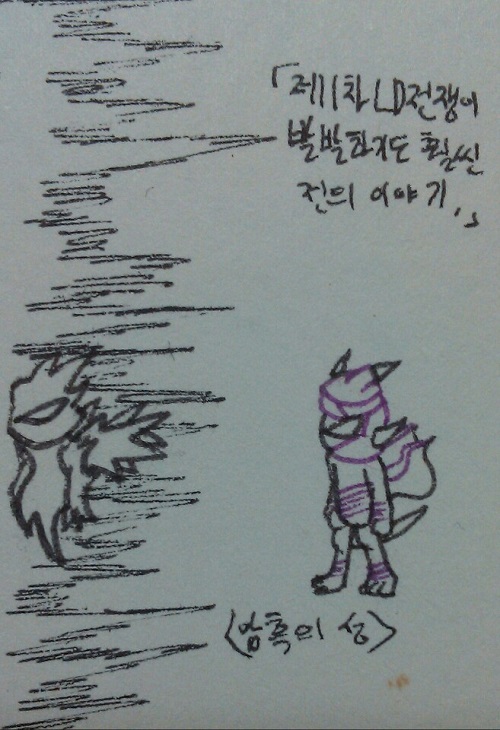 「제1차 LD전쟁이
발발하기도 훨씬
전의 이야기.」
<암흑의 성>